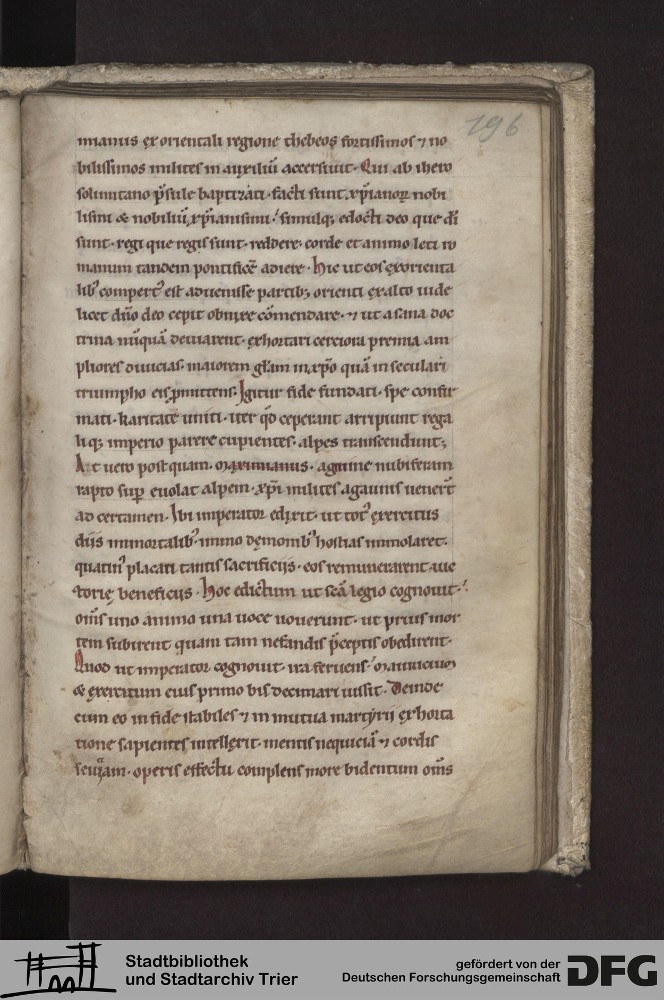 196
mianus ex orientali regione thebeos fortissimos ⁊ no
bilissimos milites in auxiliū accersiuit. Qui ab ihero
solimitano p̄sule baptizati. facti sunt xp̄ianoꝝ nobi
lissimi & nobiliū xp̄ianissimi. similq; edocti deo que dī
sunt. regi que regis sunt. reddere. corde et animo leti ro
manum tandem pontificē adiere. Hic ut eos ex orienta
lib᾽ compert᾽ est aduenisse partib; orienti ex alto uide
licet dn̄o deo cepit obnixe cōmendare. ⁊ ut a sana doc
trina nūquā deuiarent. exhortari cerciora premia am
pliores diuicias. maiorem gl̄am in xp̄o quā in seculari
triumpho eis ꝓmittens. Igitur fide fundati. spe confir
mati. karitate uniti. iter qd̄ ceperant arripiunt rega
liq; imperio parere cupientes. alpes transcendunt;
At uero postquam. maximianus. agmine nubiferam
rapto sup̄ euolat alpem. xp̄i milites agaunis uenert̄
ad certamen. Ibi imperator edixit. ut tot᾽ exercitus
diis inmortalib᾽. immo demonib᾽ hostias immolaret.
quatin᾽ placati tantis sacrificijs. eos remunerarent uic
torię beneficiis. Hoc edictum ut scā legio cognouit.
om̄s uno animo una uoce nouerunt. ut prius mor
tem subirent quam tam nefandis p̄ceptis obedirent.
Quod ut imperator cognouit. ira feruens. mauricium
& exercitum eius primo bis decimari iussit. Deinde
cum eo in fide stabiles ⁊ in mutua martyrii exhorta
tione sapientes intellexit. mentis nequiciā ⁊ cordis
operis effectu complens more bidentum om̄s
Stadtbibliothek
und Stadtarchiv Trier
gefördert von der
Deutschen Forschungsgemeinschaft
DFG